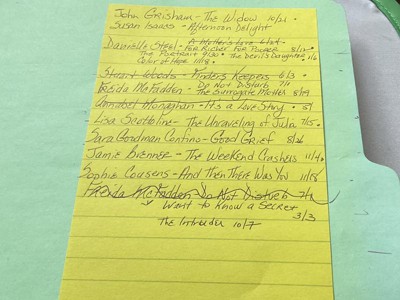 John Grisham - The Widow 10/21.
Susan Isaacs - Afternoon Delight
A Mother's Love 6/24
Danielle Steel - For Richer For Poorer 8/12
The Portrait 9/30 - The Devil's Daughter 1/6
Color of Hope 10/8.
Stuart Woods - Finders Keepers 6/3.
Do Not Disturb 7/1
Freida McFadden - The Surrogate Mother 8/19
Annabel Monaghan - It's a Love Story. 5/
Lisa Scottoline - The Unraveling of Julia 7/15.
Sara Goodman Confino - Good Grief 8/26
Jamie Brenner - The Weekend Crashers 11/4.
Sophie Cousens - And Then There Was You 11/18
Freida McFadden Do Not Disturb 7/1
Want to Know a Secret
3/3
The Intruder 10/7